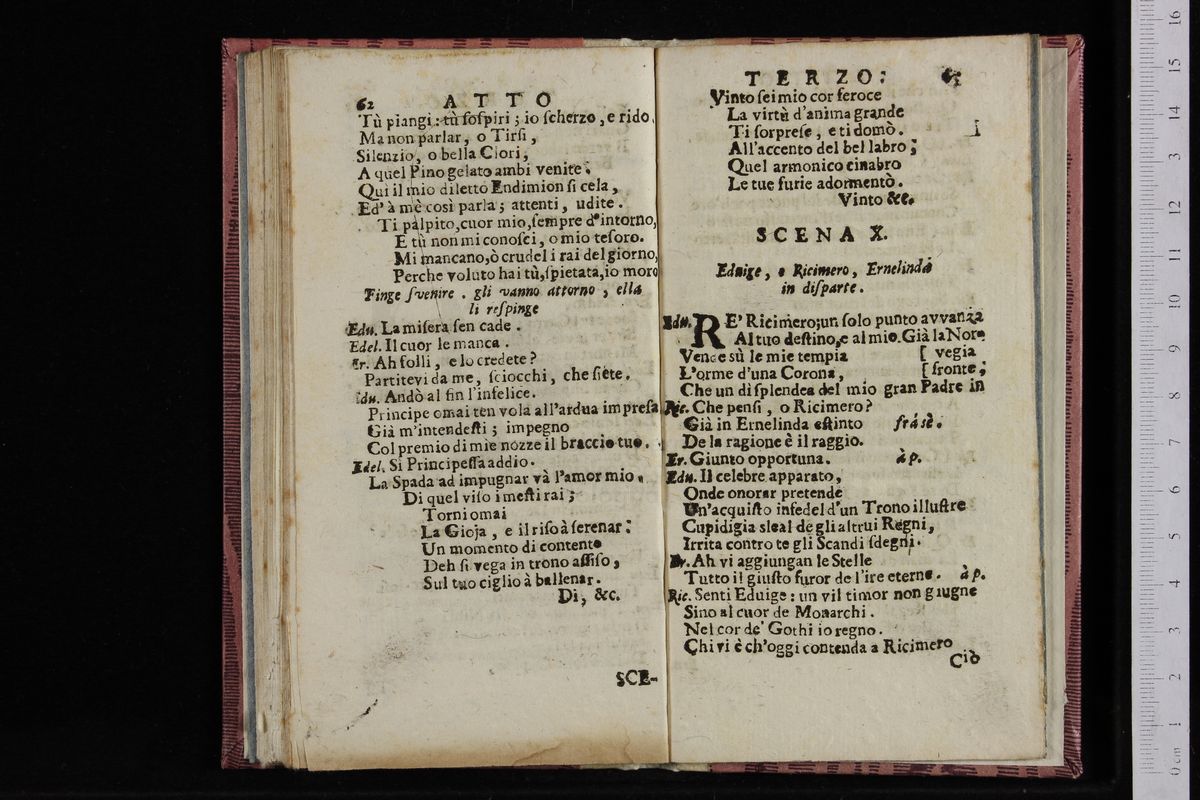 62 ATTO
Tù piangi: tù ſoſpiri; io ſcherzo, e rido.
Ma non parlar, o Tirſi,
Silenzio, o bella Clori,
A quel Pino gelato ambi venite:
Quì il mio diletto Endimion ſi cela,
Ed' à mè così parla; attenti, udite.
Ti palpito, cuor mio, ſempre d'intorno,
E tù non mi conoſci, o mio teſoro.
Mi mancano, ò crudel i rai del giorno,
Perche voluto hai tù, ſpietata, io moro
Finge ſvenire. gli vanno attorno, ella
li reſpinge
Edu. La miſera ſen cade.
Edel. Il cuor le manca.
Er. Ah folli, e lo credete?
Partitevi da me, ſciocchi, che ſiete.
Edu. Andò al fin l'infelice.
Principe omai ten vola all'ardua impreſa
Già m'intendeſti; impegno
Col premio di mie nozze il braccio tuo.
Edel. Si Principeſſa addio.
La Spada ad impugnar và l'amor mio.
Di quel viſo i meſti rai;
Torni omai
La Gioja, e il riſo à ſerenar:
Un momento di contento
Deh ſi vega in trono aſſiſo,
Sul tuo ciglio à ballenar.
Di, &c.
SCE-
TERZO:
Vinto ſei mio cor feroce
La virtù d'anima grande
Ti ſorpreſe, e ti domò.
All'accento del bel labro;
Quel armonico cinabro
Le tue furie adormentò.
Vinto &c.
SCENA X.
Eduige, e Ricimero, Ernelinda
in diſparte.
Edu. RE' Ricimero; un ſolo punto avvanza
Al tuo deſtino, e al mio. Già la Nor-
Vence sù le mie tempia [vegia
L'orme d'una Corona, [fronte;
Che un dì ſplendea del mio gran Padre in
Ric. Che penſi, o Ricimero?
Già in Ernelinda eſtinto frá sè.
De la ragione è il raggio.
Er. Giunto opportuna. à p.
Edu. Il celebre apparato,
Onde onorar pretende
Un'acquiſto infedel d'un Trono illuſtre
Cupidigia sleal degli altrui Regni,
Irrita contro te gli Scandi ſdegni.
Er. Ah vi aggiungan le Stelle
Tutto il giuſto furor de l'ire eterne. à p.
Ric. Senti Eduige: un vil timor non giugne
Sino al cuor de Monarchi.
Nel cor de' Gothi io regno.
Chi vi è ch'oggi contenda a Ricimero
Ciò